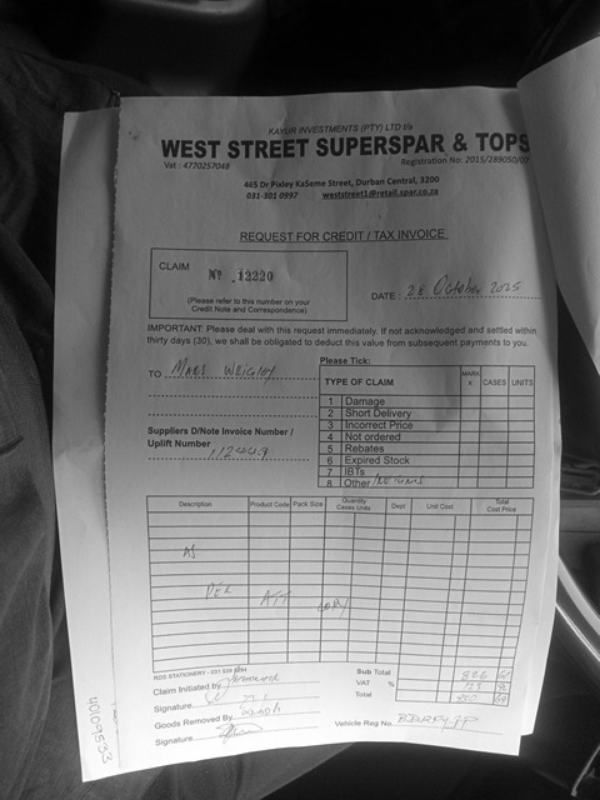 KAYUR INVESTMENTS (PTY) LTD t/a
WEST STREET SUPERSPAR & TOPS
Vat : 4770257048
Registration No: 2015/289050/07
465 Dr Pixley KaSeme Street, Durban Central, 3200
031-301 0997 weststreet1@retail.spar.co.za
REQUEST FOR CREDIT / TAX INVOICE
CLAIM Nº 12220
(Please refer to this number on your
Credit Note and Correspondence)
DATE : 28 October 2025
IMPORTANT: Please deal with this request immediately. If not acknowledged and settled within
thirty days (30), we shall be obligated to deduct this value from subsequent payments to you.
TO Mars Wrigley
Please Tick:
TYPE OF CLAIM MARK X CASES UNITS
1 Damage
2 Short Delivery
3 Incorrect Price
4 Not ordered
5 Rebates
6 Expired Stock
7 IBTs
8 Other / Returns
Suppliers D/Note Invoice Number /
Uplift Number
Description Product Code Pack Size Quantity Cases Units Dept Unit Cost Total Cost Price
AS
PER ATT COPY
RDS STATIONERY - 031
Claim Initiated by
Signature
Goods Removed By
Signature
Sub Total
VAT %
Total
Vehicle Reg No.